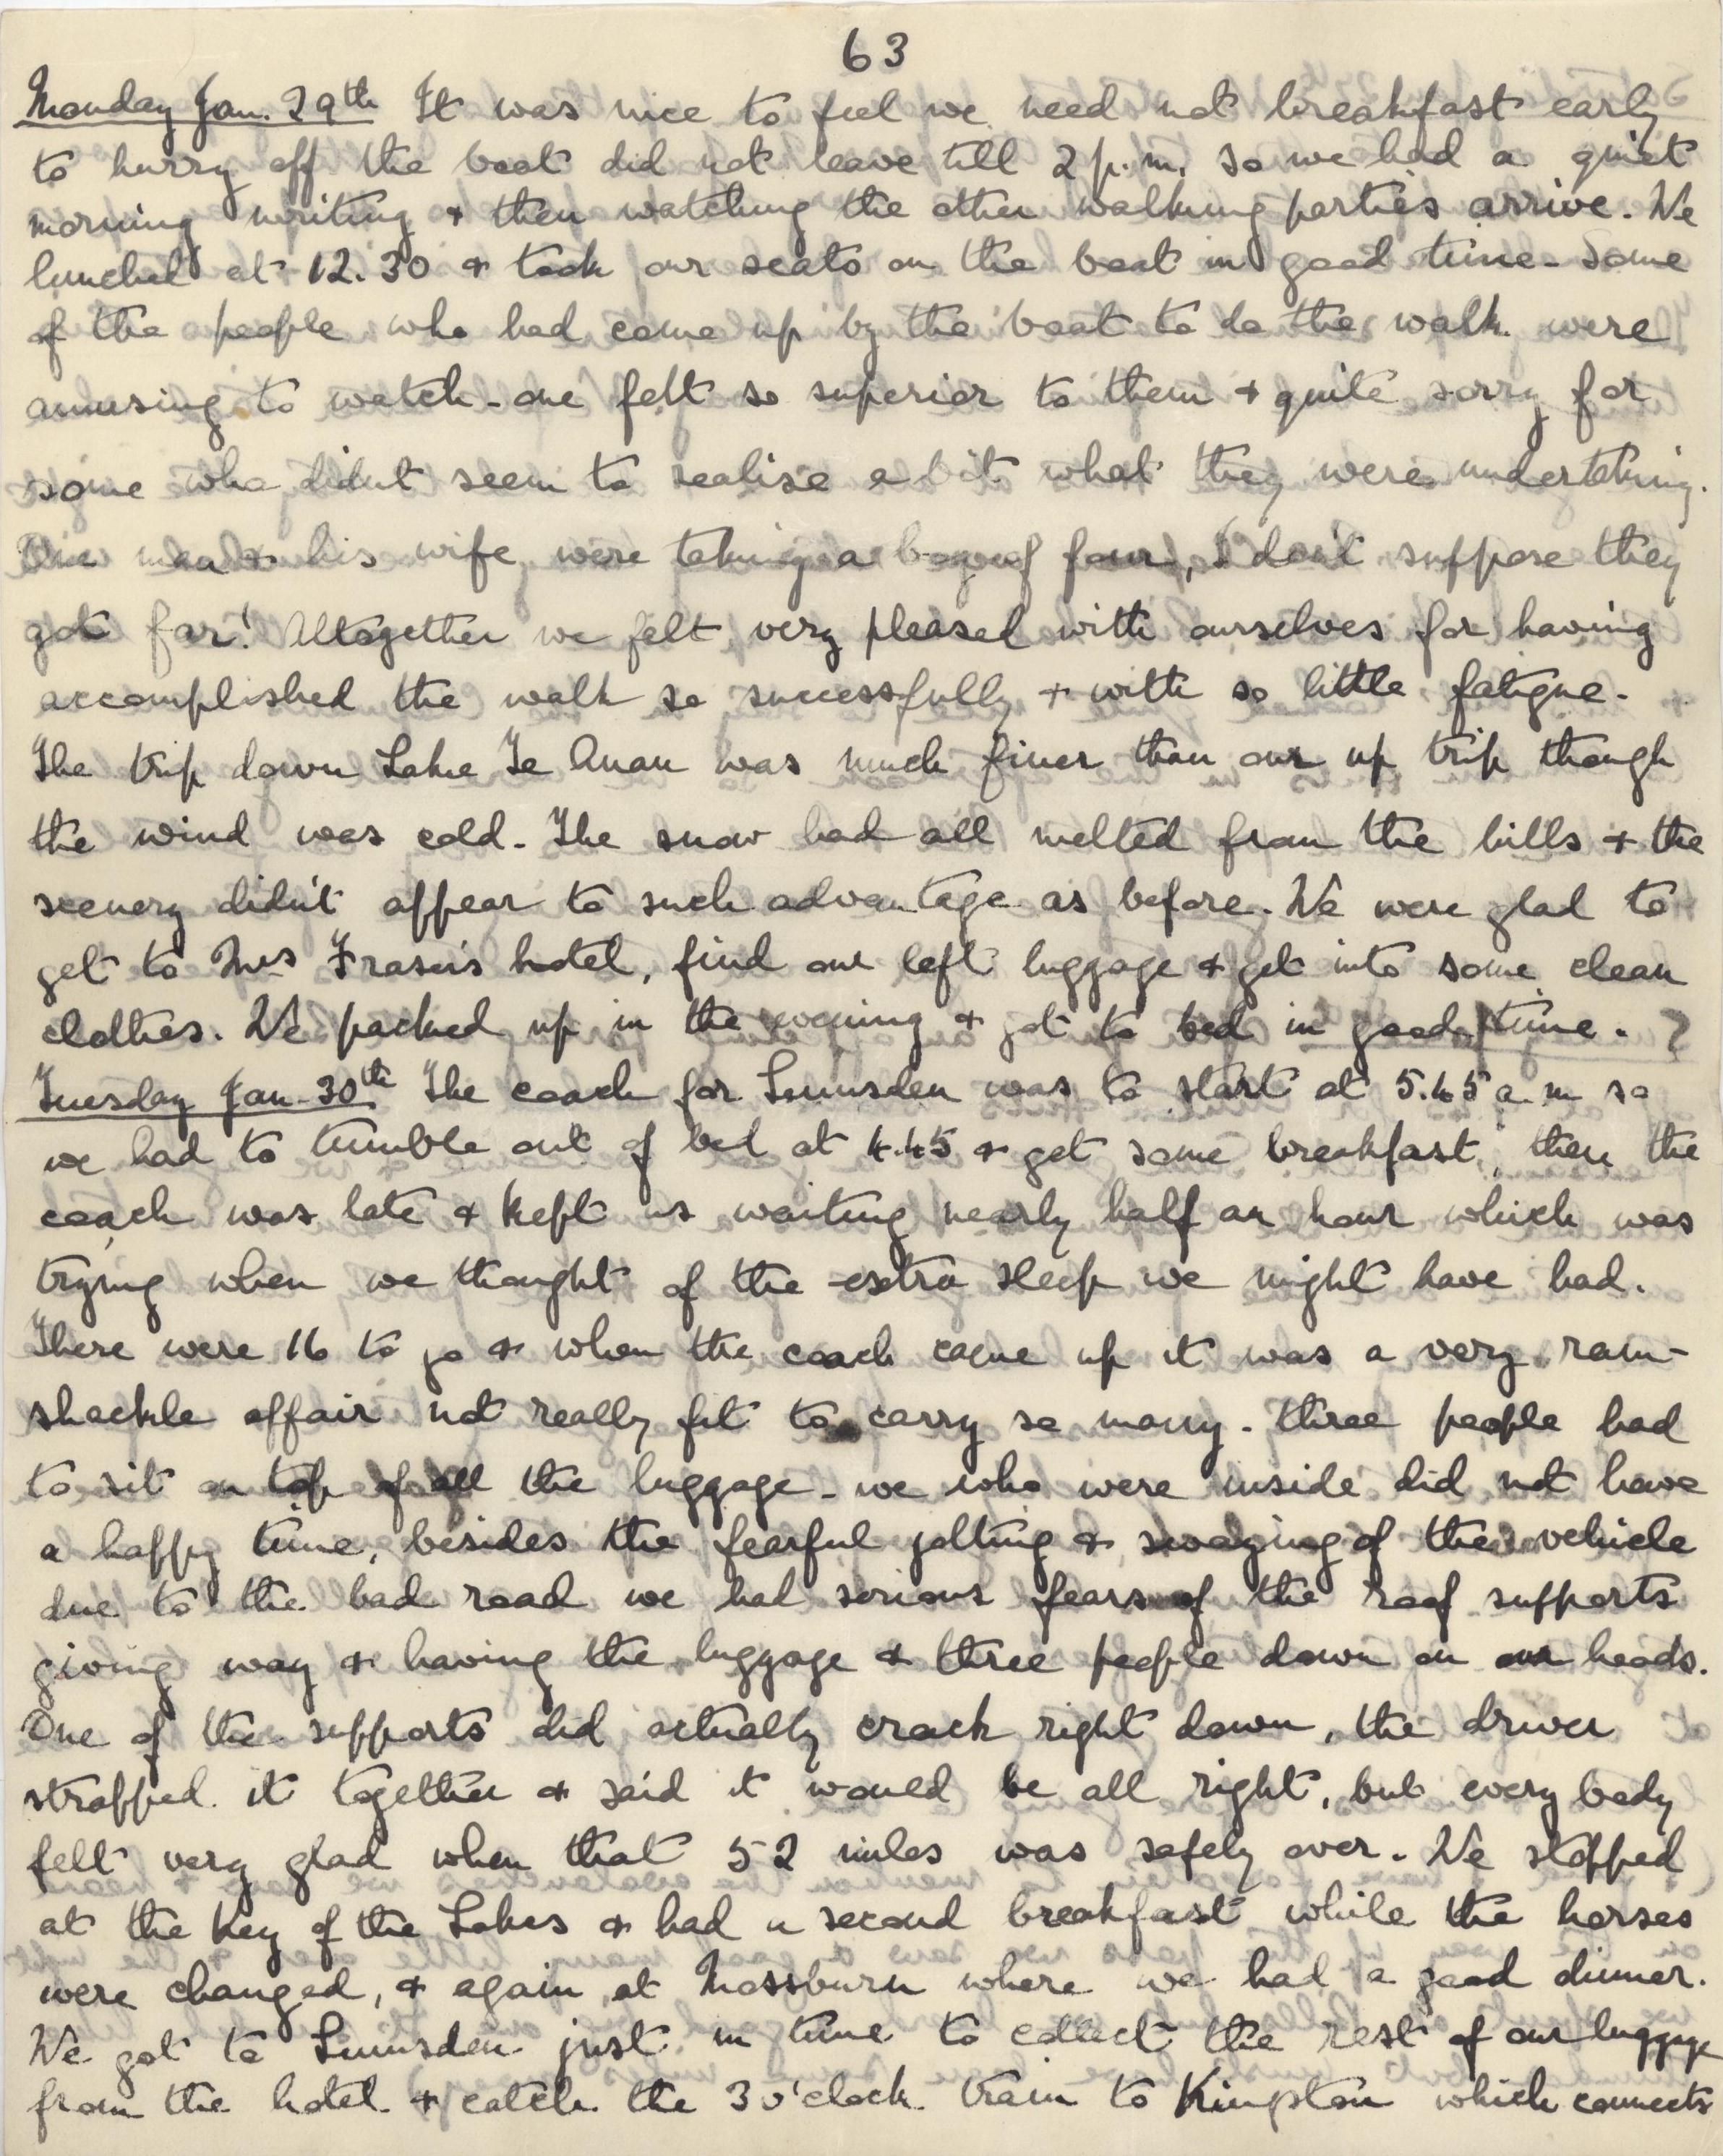 63
Monday Jan. 29th It was nice to feel we need not breakfast early
to hurry off the boat did not leave till 2 p.m. so we had a quiet
morning writing & then watching the other walking parties arrive. We
lunched at 12.30 & took our seats on the boat in good time - some
of the people who had come up by the boat to do the walk were
amusing to watch - one felt so superior to them & quite sorry for
some who didnt seem to realise a bit what they were undertaking.
One man & his wife were taking a boy of four, I don't suppose they
got far! Altogether we felt very pleased with ourselves for having
accomplished the walk so successfully & with so little fatigue.
The trip down Lake Te Anau was much finer than our up trip though
the wind was cold. The snow had all melted from the hills & the
scenery didn't appear to such advantage as before. We were glad to
get to Mrs Fraser's hotel, find our left luggage & get into some clean
clothes. We packed up in the evening & got to bed in good time.
Tuesday Jan 30th The coach for Lumsden was to start at 5.45 a.m so
we had to tumble out of bed at 4.45 & get some breakfast, then the
coach was late & kept us waiting nearly half an hour which was
trying when we thought of the extra sleep we might have had.
There were 16 to go & when the coach came up it was a very ram-
shackle affair not really fit to carry so many. three people had
to sit on top of all the luggage - we who were inside did not have
a happy time, besides the fearful jolting & swaying of the vehicle
due to the bad road we had serious fears of the roof supports
giving way & having the luggage & three people down on our heads.
One of the supports did actually crack right down, the driver
strapped it together & said it would be all right, but every body
felt very glad when that 52 miles was safely over. We stopped
at the Key of the Lakes & had a second breakfast while the horses
were changed, & again at Mossburn where we had a good dinner.
We got to Lumsden just in time to collect the rest of our luggage
from the hotel & catch the 3 o'clock train to Kingston which connects